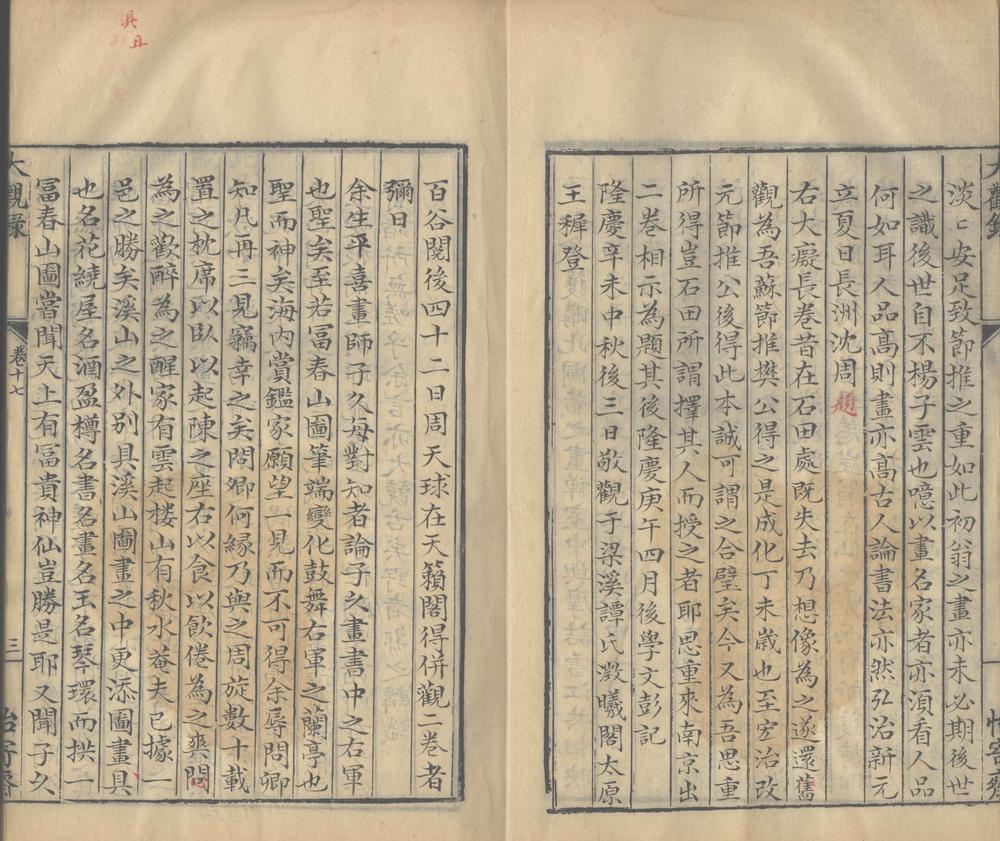 淡〻安足致節推之重如此初翁之畫亦未必期後世
之識後世自不楊子雲也噫以畫名家者亦須看人品
何如耳人品髙則畫亦髙古人論書法亦然弘治新元
立夏日長洲沈周題
右大癡長卷昔在石田處既失去乃想像為之遂還舊
觀為吾蘇節推樊公得之是成化丁未歲也至宏治改
元節推公後得此本誠可謂之合璧矣今又為吾思重
所得豈石田所謂擇其人而授之者耶思重來南京出
二卷相示為題其後隆慶庚午四月後學文彭記
隆慶辛未中秋後三日敬觀于梁溪譚氏澂曦閣太原
王穉登
大觀錄
卷十七
三
怡寄齋
百谷閱後四十二日周天球在天籟閣得併觀二卷者
彌日
余生平喜畫師子久每對知者論子久畫書中之右軍
也聖矣至若冨春山圖筆端變化鼓舞右軍之蘭亭也
聖而神矣海內賞鑑家願望一見而不可得余辱問卿
知凡再三見竊幸之矣問卿何緣乃與之周旋數十載
置之枕席以臥以起陳之座右以食以飲倦為之爽悶
為之歡醉為之醒家有雲起楼山有秋水菴夫已據一
邑之勝矣溪山之外别具溪山圖畫之中更添圖畫具
也名花繞屋名酒盈樽名書名畫名玉名琴環而拱一
冨春山圖嘗聞天上有冨貴神仙豈勝是耶又聞子久